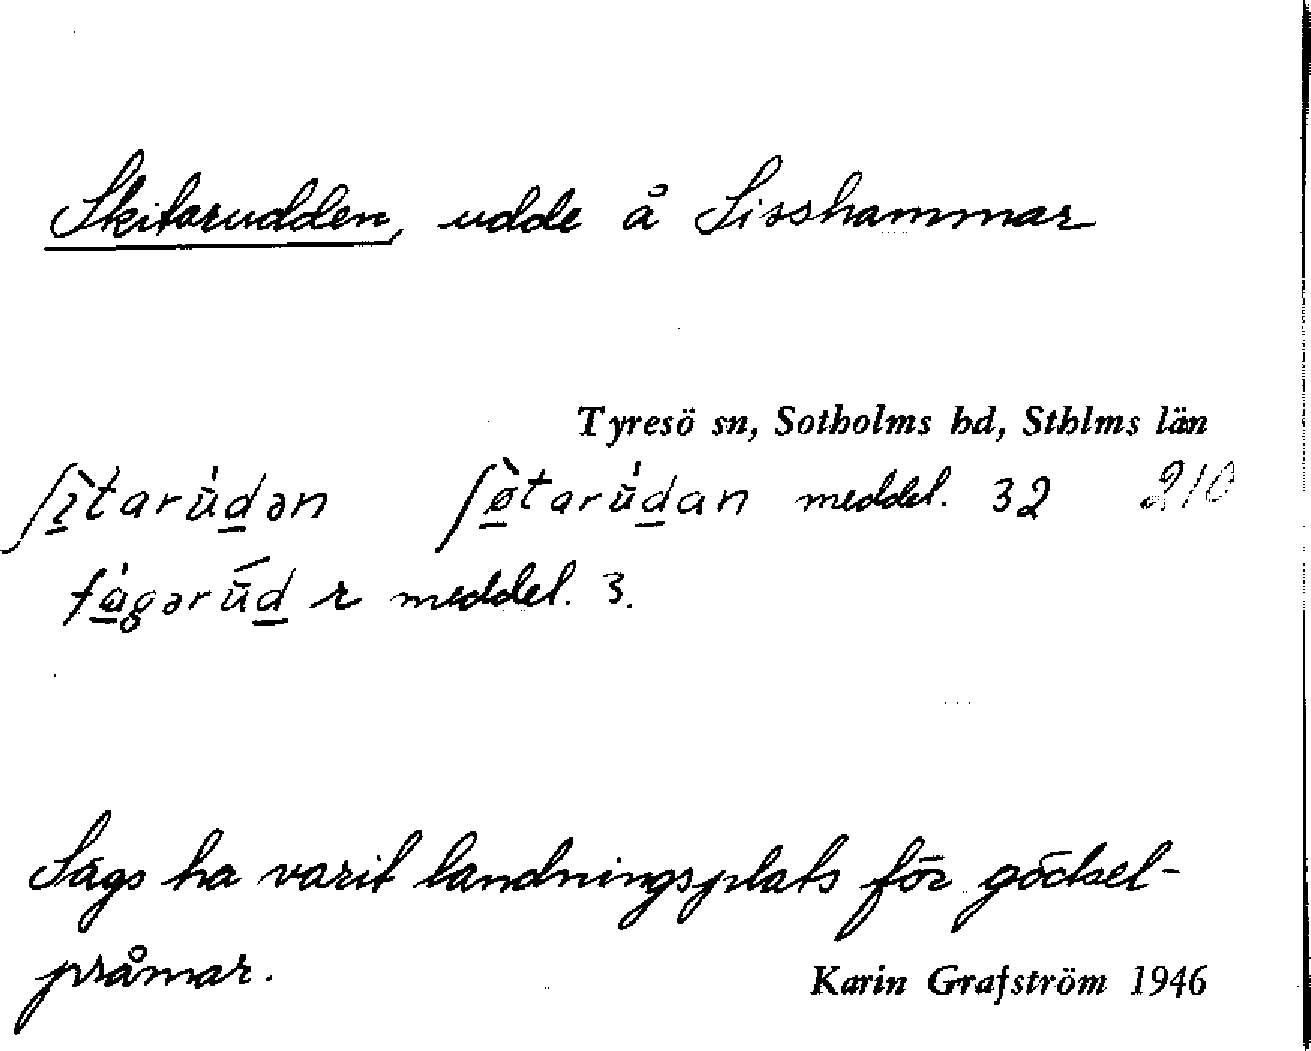 Skitarudden, udde å Lisshammar
Tyresö sn, Sotholms hd, Sthlms län
ʃı̀tarúdən ʃø̀tarúdan meddel. 32 210
fágərúd r meddel. 3.
Sägs ha varit landningsplats för gödsel-
pråmar.
Karin Grafström 1946